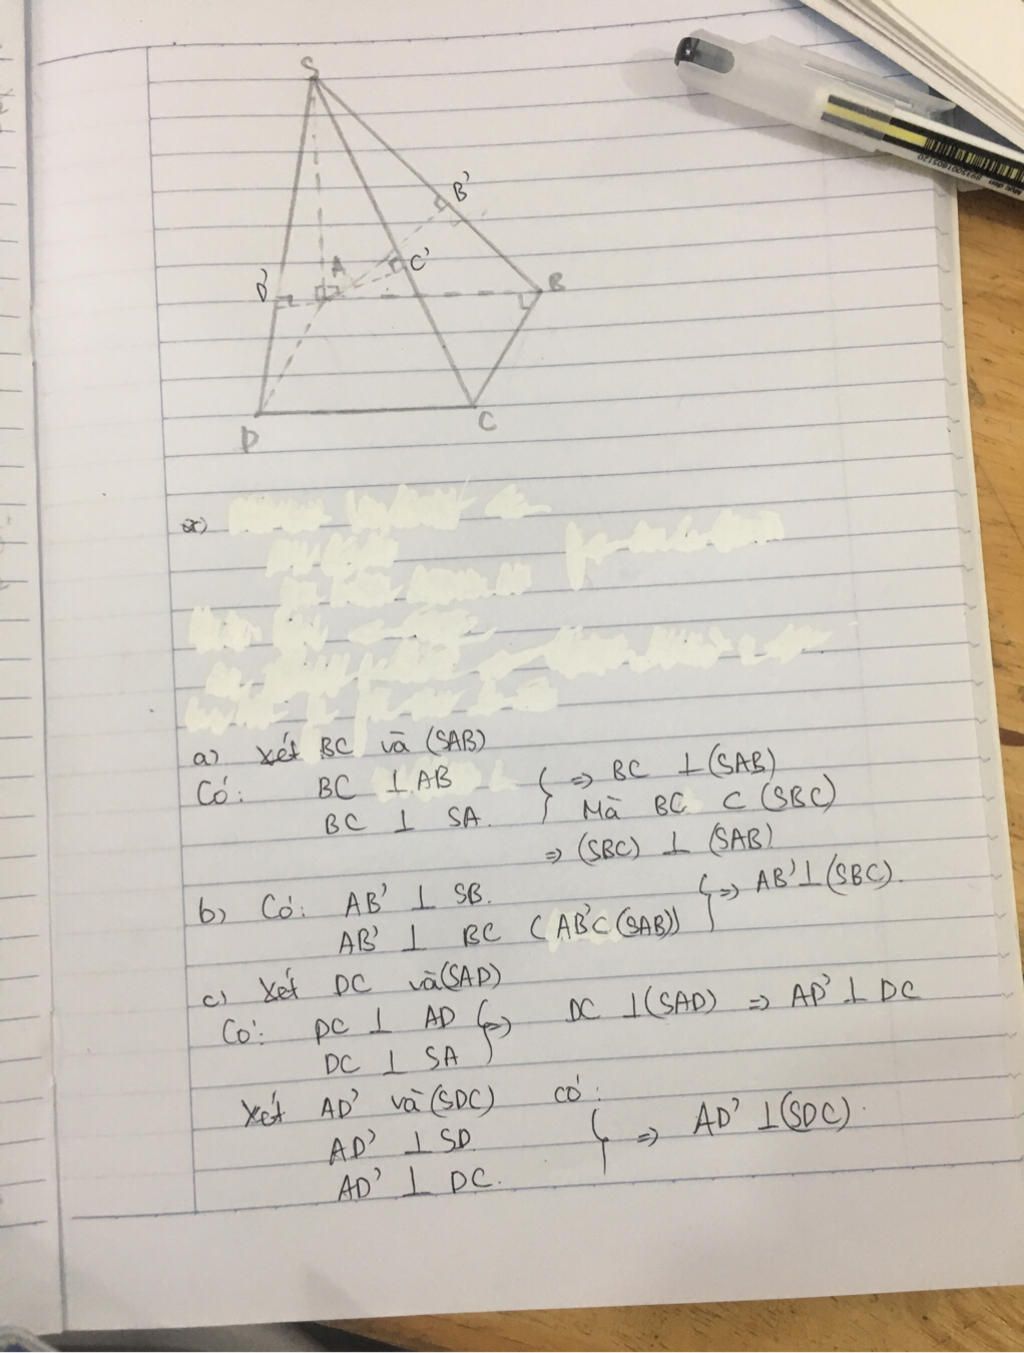 S
B'
A
C'
D'
B
D
C
a)
a) Xét BC và (SAB)
Có: BC ⊥ AB
BC ⊥ SA.
} => BC ⊥ (SAB)
Mà BC ⊂ (SBC)
=> (SBC) ⊥ (SAB)
b) Có: AB' ⊥ SB.
AB' ⊥ BC (AB' ⊂ (SAB))
} => AB' ⊥ (SBC).
c) Xét DC và (SAD)
Có: DC ⊥ AD
DC ⊥ SA
} => DC ⊥ (SAD) => AD' ⊥ DC
Xét AD' và (SDC) có:
AD' ⊥ SD
AD' ⊥ DC.
} => AD' ⊥ (SDC).